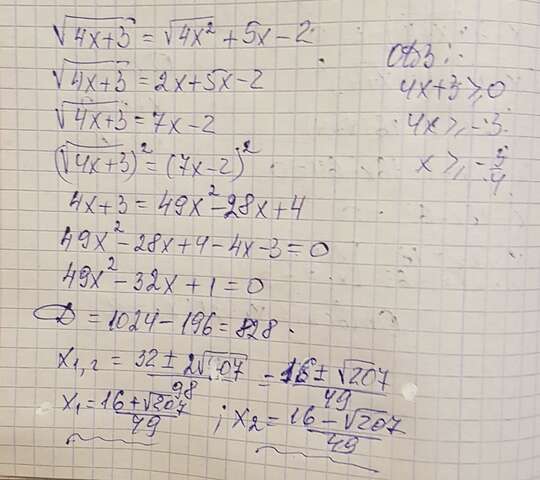 √4x+3 = √4x² + 5x - 2
√4x+3 = 2x + 5x - 2
√4x+3 = 7x - 2
(√4x+3)² = (7x - 2)²
4x + 3 = 49x² - 28x + 4
49x² - 28x + 4 - 4x - 3 = 0
49x² - 32x + 1 = 0
D = 1024 - 196 = 828
x₁,₂ = 32 ± 2√207 / 98 = 16 ± √207 / 49
x₁ = 16 + √207 / 49 ; x₂ = 16 - √207 / 49
ОДЗ:
4x + 3 ≥ 0
4x ≥ -3
x ≥ -3/4